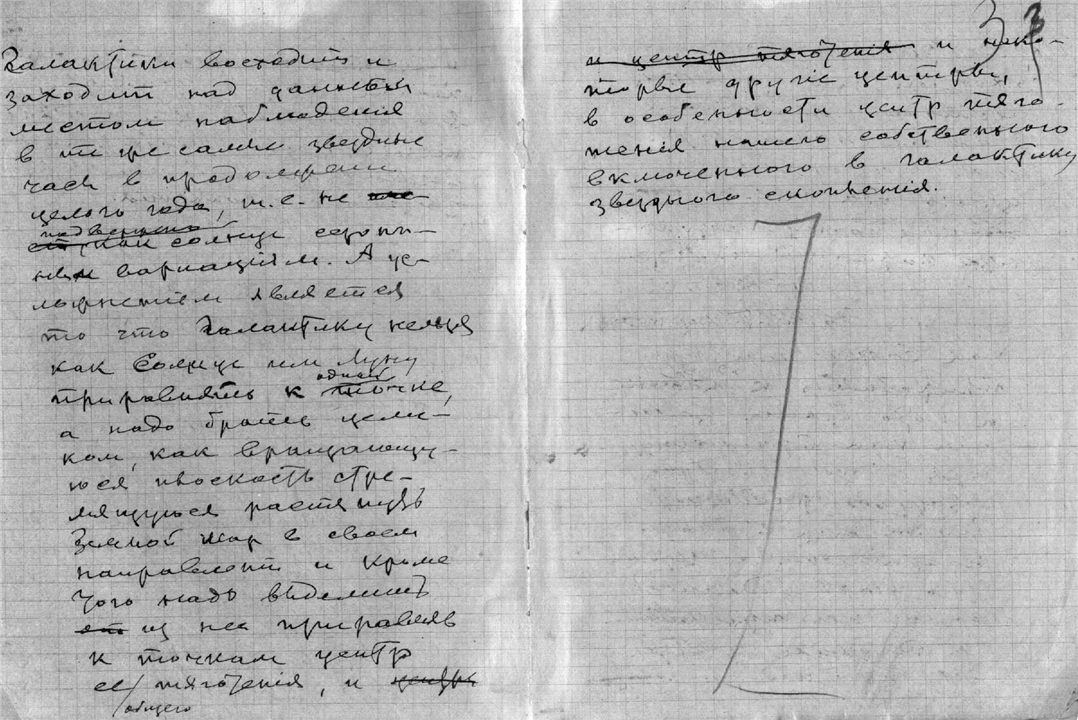 Галактики восходит и
заходит над данным
местом наблюдения
в те же самые звездные
часы в продолжении
целого года, т.е. не
подвержено
как солнце сезон-
ным вариациям. А ус-
ложнением является
то что Галактику нельзя
как Солнце или Луну
приравнять к одной точке,
а надо брать цели-
ком, как вращающу-
юся плоскость стре-
мящуюся растянуть
Земной шар в своем
направлении и кроме
того надо выделить
из нея приравняв
к точкам центр
ее общего тяготения, и центр
33
и центр тяготения и неко-
торые другие центры,
в особенности центр тяго-
тения нашего собственного
включенного в галактику
звездного скопления.